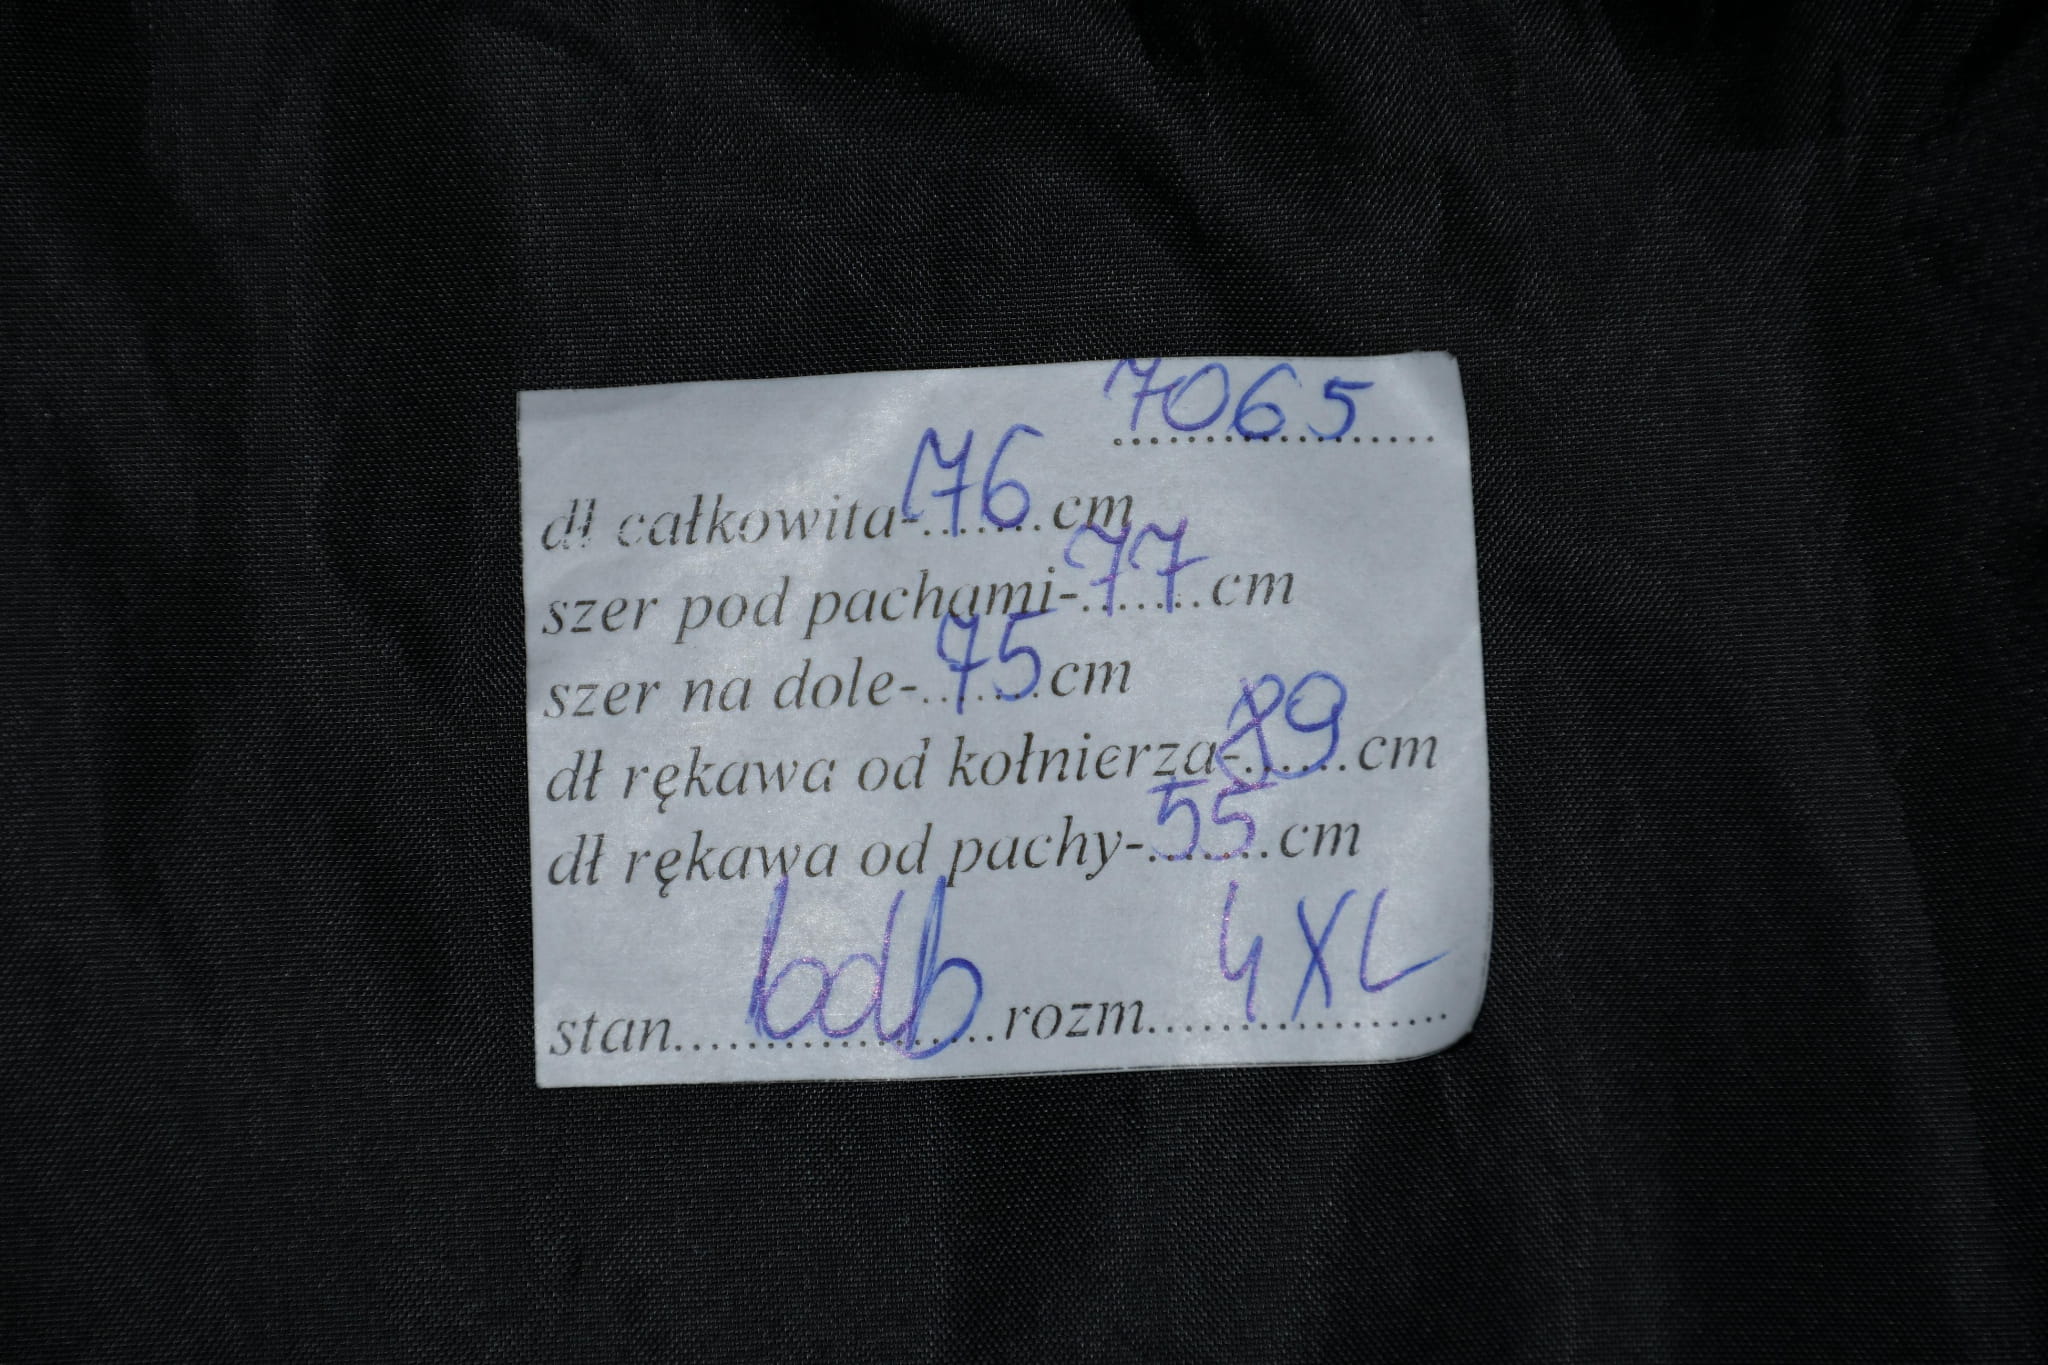 7065
dł całkowita-76 cm
szer pod pachami-77 cm
szer na dole-75 cm
dł rękawa od kołnierza-89 cm
dł rękawa od pachy-55 cm
stan bdb rozm 4XL